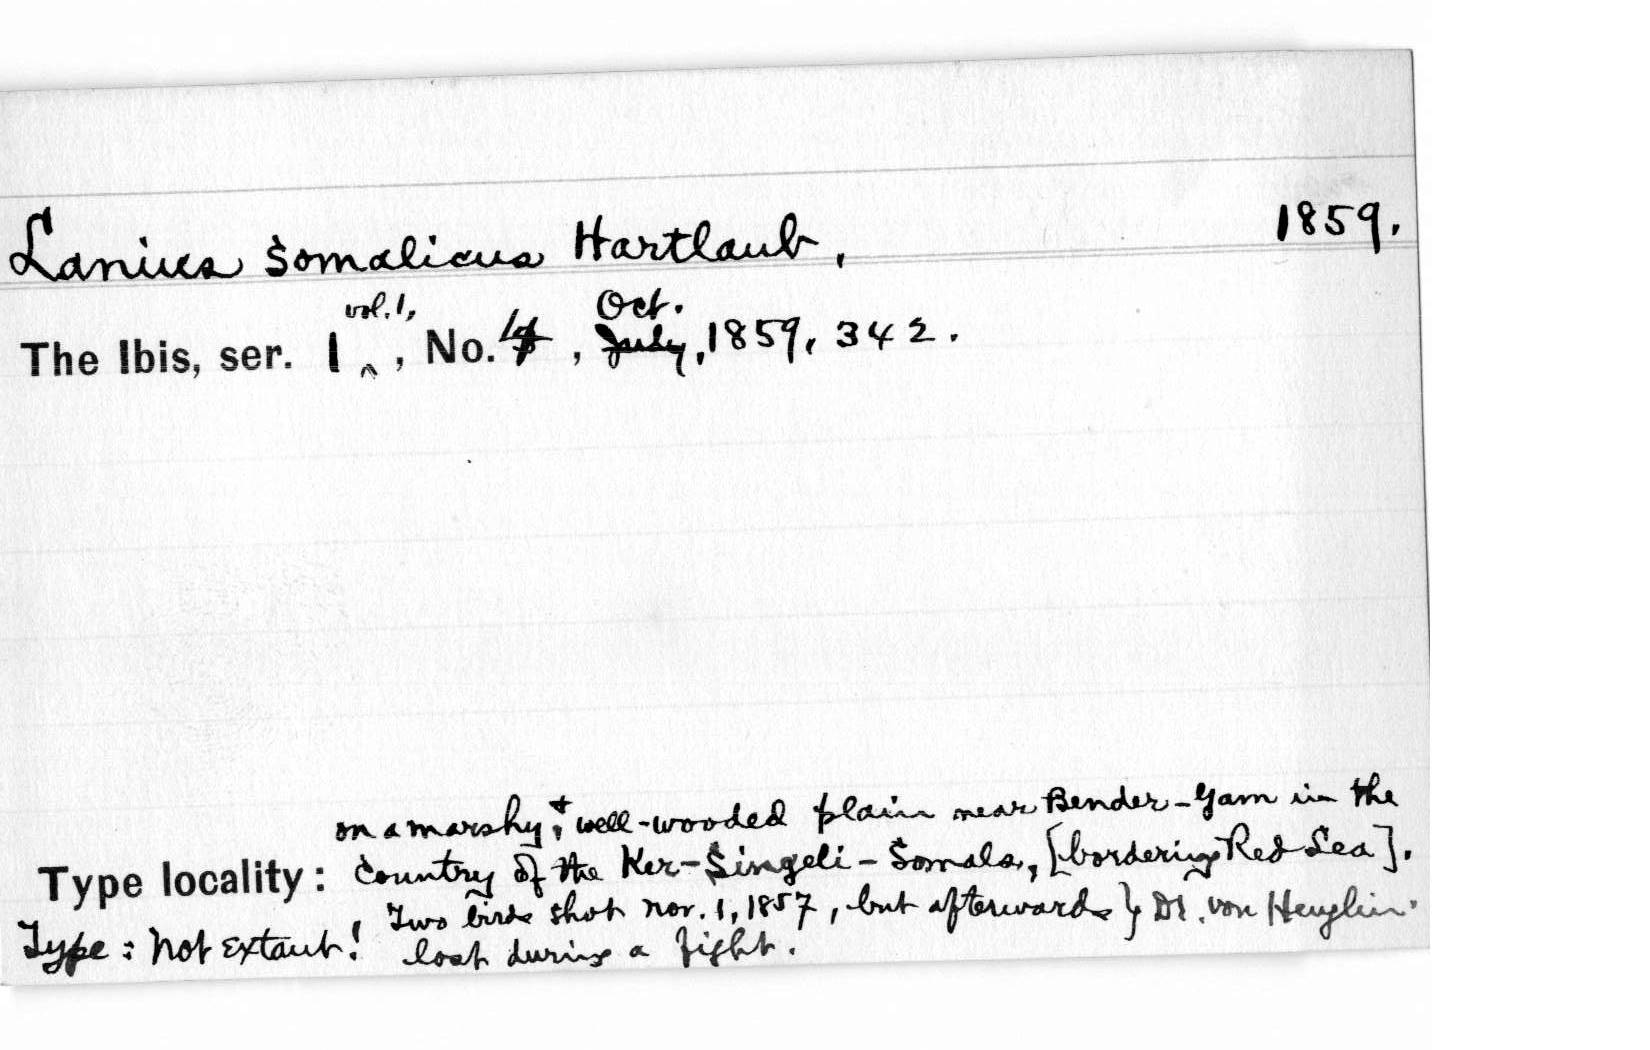 Lanius somalicus Hartlaub, 1859.
vol. 1, Oct.
The Ibis, ser. 1 ‸, No. 4, July, 1859, 342.
on a marshy & well-wooded plain near Bender-Gam in the
Type locality: Country of the Ker-Singeli-Somals, [bordering Red Sea].
Type: Not extant! Two birds shot Nov. 1, 1857, but afterwards } Dr. von Heuglin.
lost during a fight.